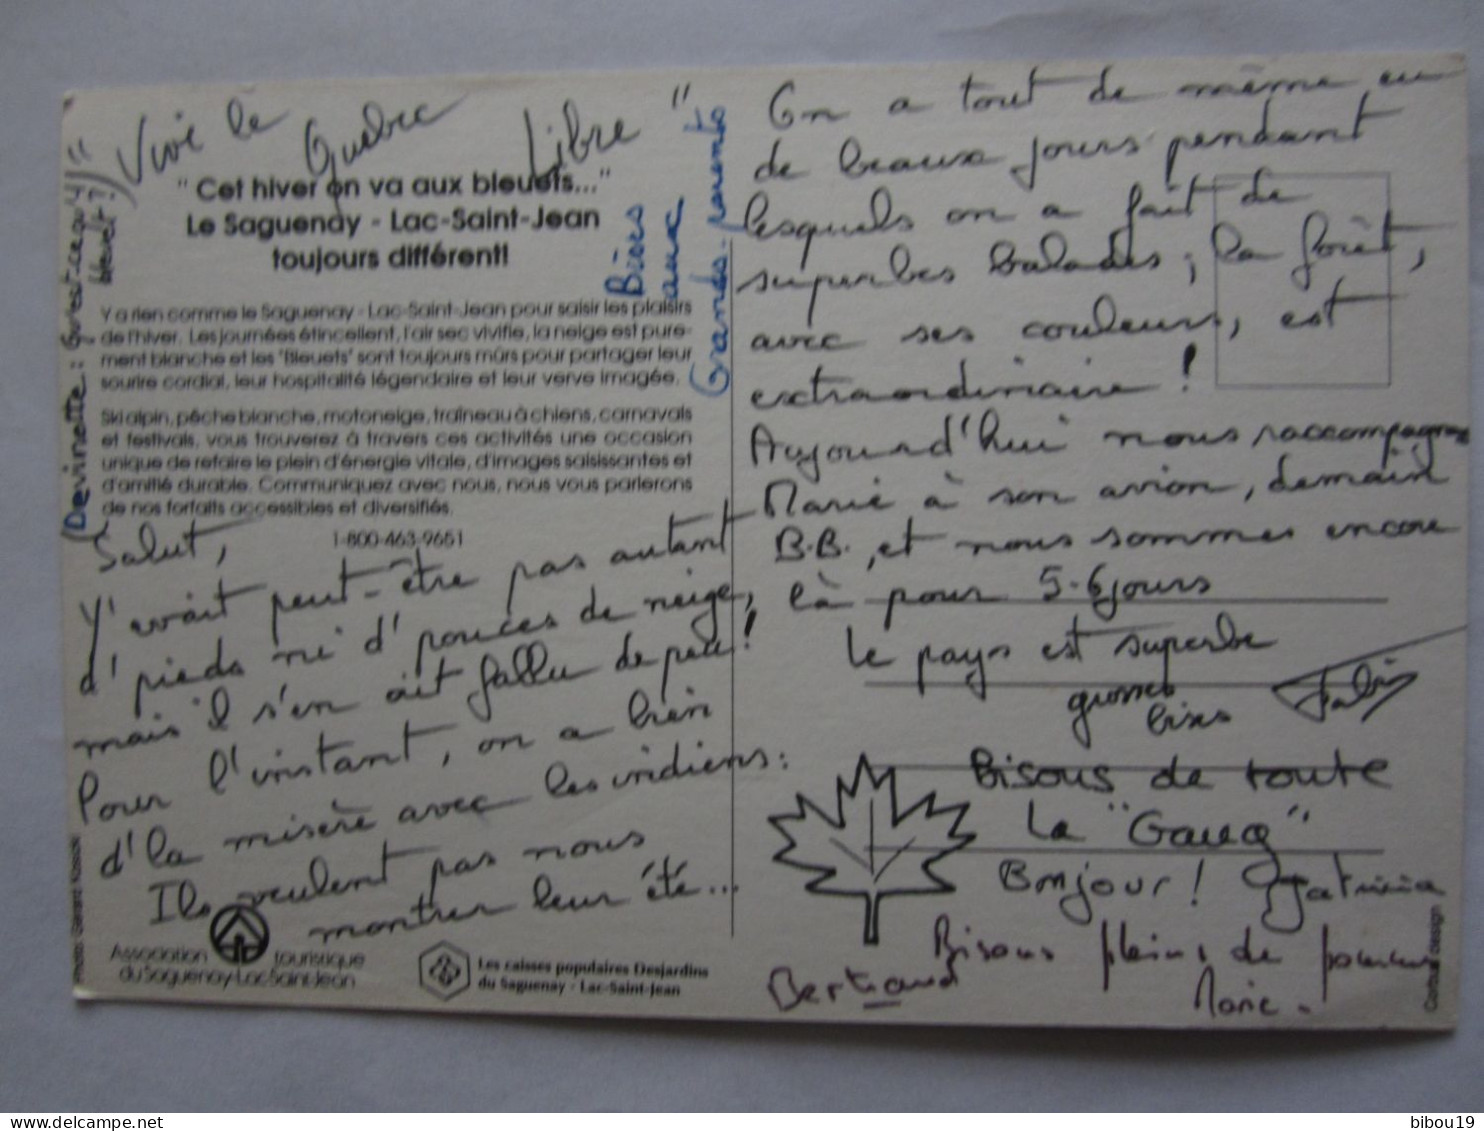 "Vive le Québec Libre"
(Devinette: Qu'est-ce qu'1
bleuet?)
Bises
aux
Grands-parents
"Cet hiver on va aux bleuets..."
Le Saguenay - Lac-Saint-Jean
toujours différent!
Y a rien comme le Saguenay - Lac-Saint-Jean pour saisir les plaisirs
de l'hiver. Les journées étincellent, l'air sec vivifie, la neige est pure-
ment blanche et les "Bleuets" sont toujours mûrs pour partager leur
sourire cordial, leur hospitalité légendaire et leur verve imagée.
Ski alpin, pêche blanche, motoneige, traîneau à chiens, carnavals
et festivals, vous trouverez à travers ces activités une occasion
unique de refaire le plein d'énergie vitale, d'images saisissantes et
d'amitié durable. Communiquez avec nous, nous vous parlerons
de nos forfaits accessibles et diversifiés.
1-800-463-9651
Salut,
Y'avait peut-être pas autant
d'pieds ni d'pouces de neige,
mais il s'en ait fallu de peu!
Pour l'instant, on a bien
d'la misère avec les indiens:
Ils veulent pas nous
montrer leur été...
Photo: Gérard
Association touristique
du Saguenay-Lac-Saint-Jean
Les caisses populaires Desjardins
du Saguenay - Lac-Saint-Jean
On a tout de même eu
de beaux jours pendant
lesquels on a fait de
superbes balades; la forêt,
avec ses couleurs, est
extraordinaire!
Aujourd'hui nous raccompagnons
Marie à son avion, demain
B.B., et nous sommes encore
là pour 5-6 jours
Le pays est superbe
grosses
bises
Bisous de toute
la "Gang"
Bonjour! Patricia
Bisous pleins de
Bertrand
Marie.
Corbus design
bibou19